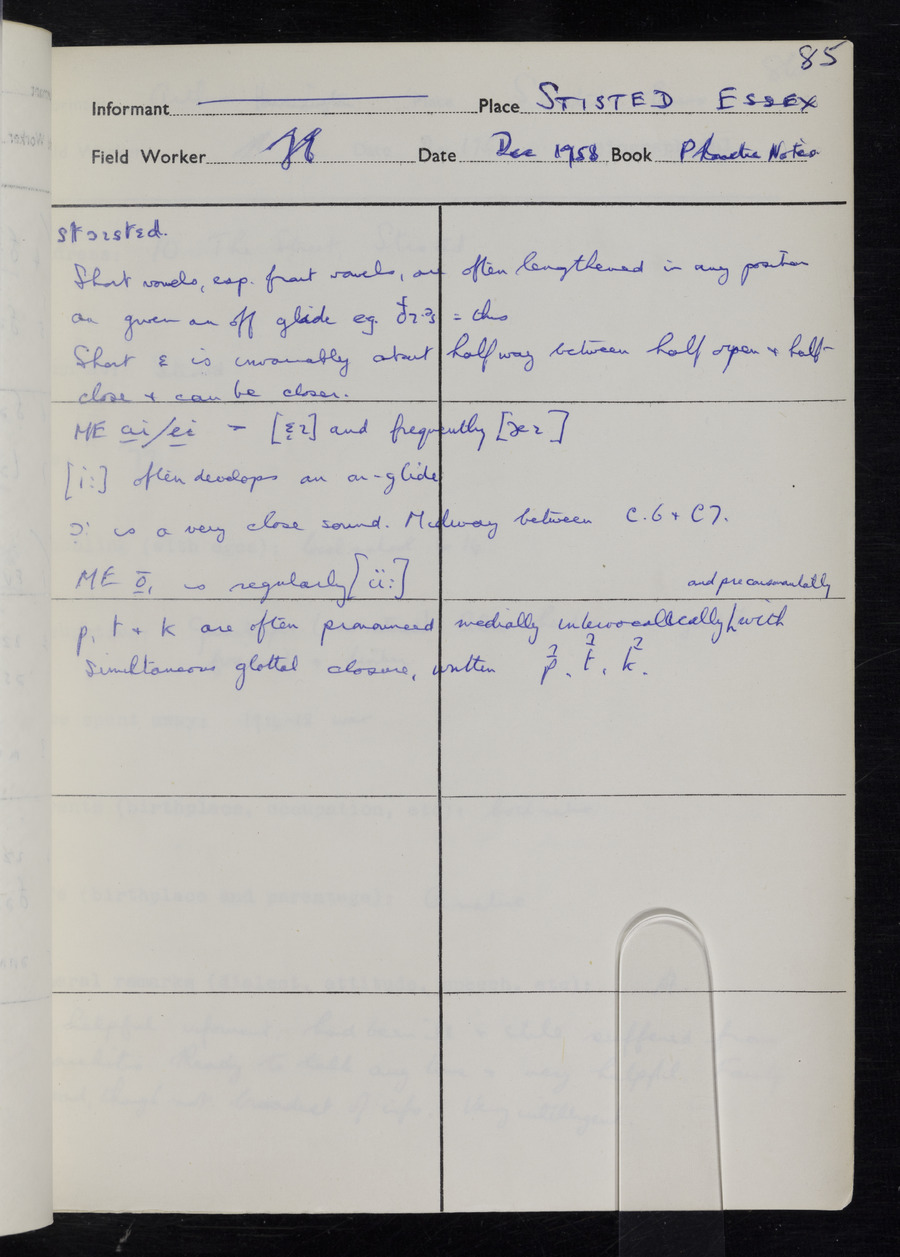 85
Informant Place STISTED ESSEX
Field Worker Date Dec 1958 Book Phonetic Notes
Short vowels, esp. front vowels, are often lengthened in any position
or given an off glide eg. = this
Short ɛ is invariably about halfway between half open + half-
close + can be closer.
ME ai/ei = [ɛ̝ɪ] and frequently [æɪ]
[i:] often develops an on-glide
ɔ: is a very close sound. Midway between C.6 + C7.
ME ō, is regularly [ü:]
and preconsonantally
p, t + k are often pronounced medially intervocallically with
simultaneous glottal closure, written p̉, t̉, k̉.